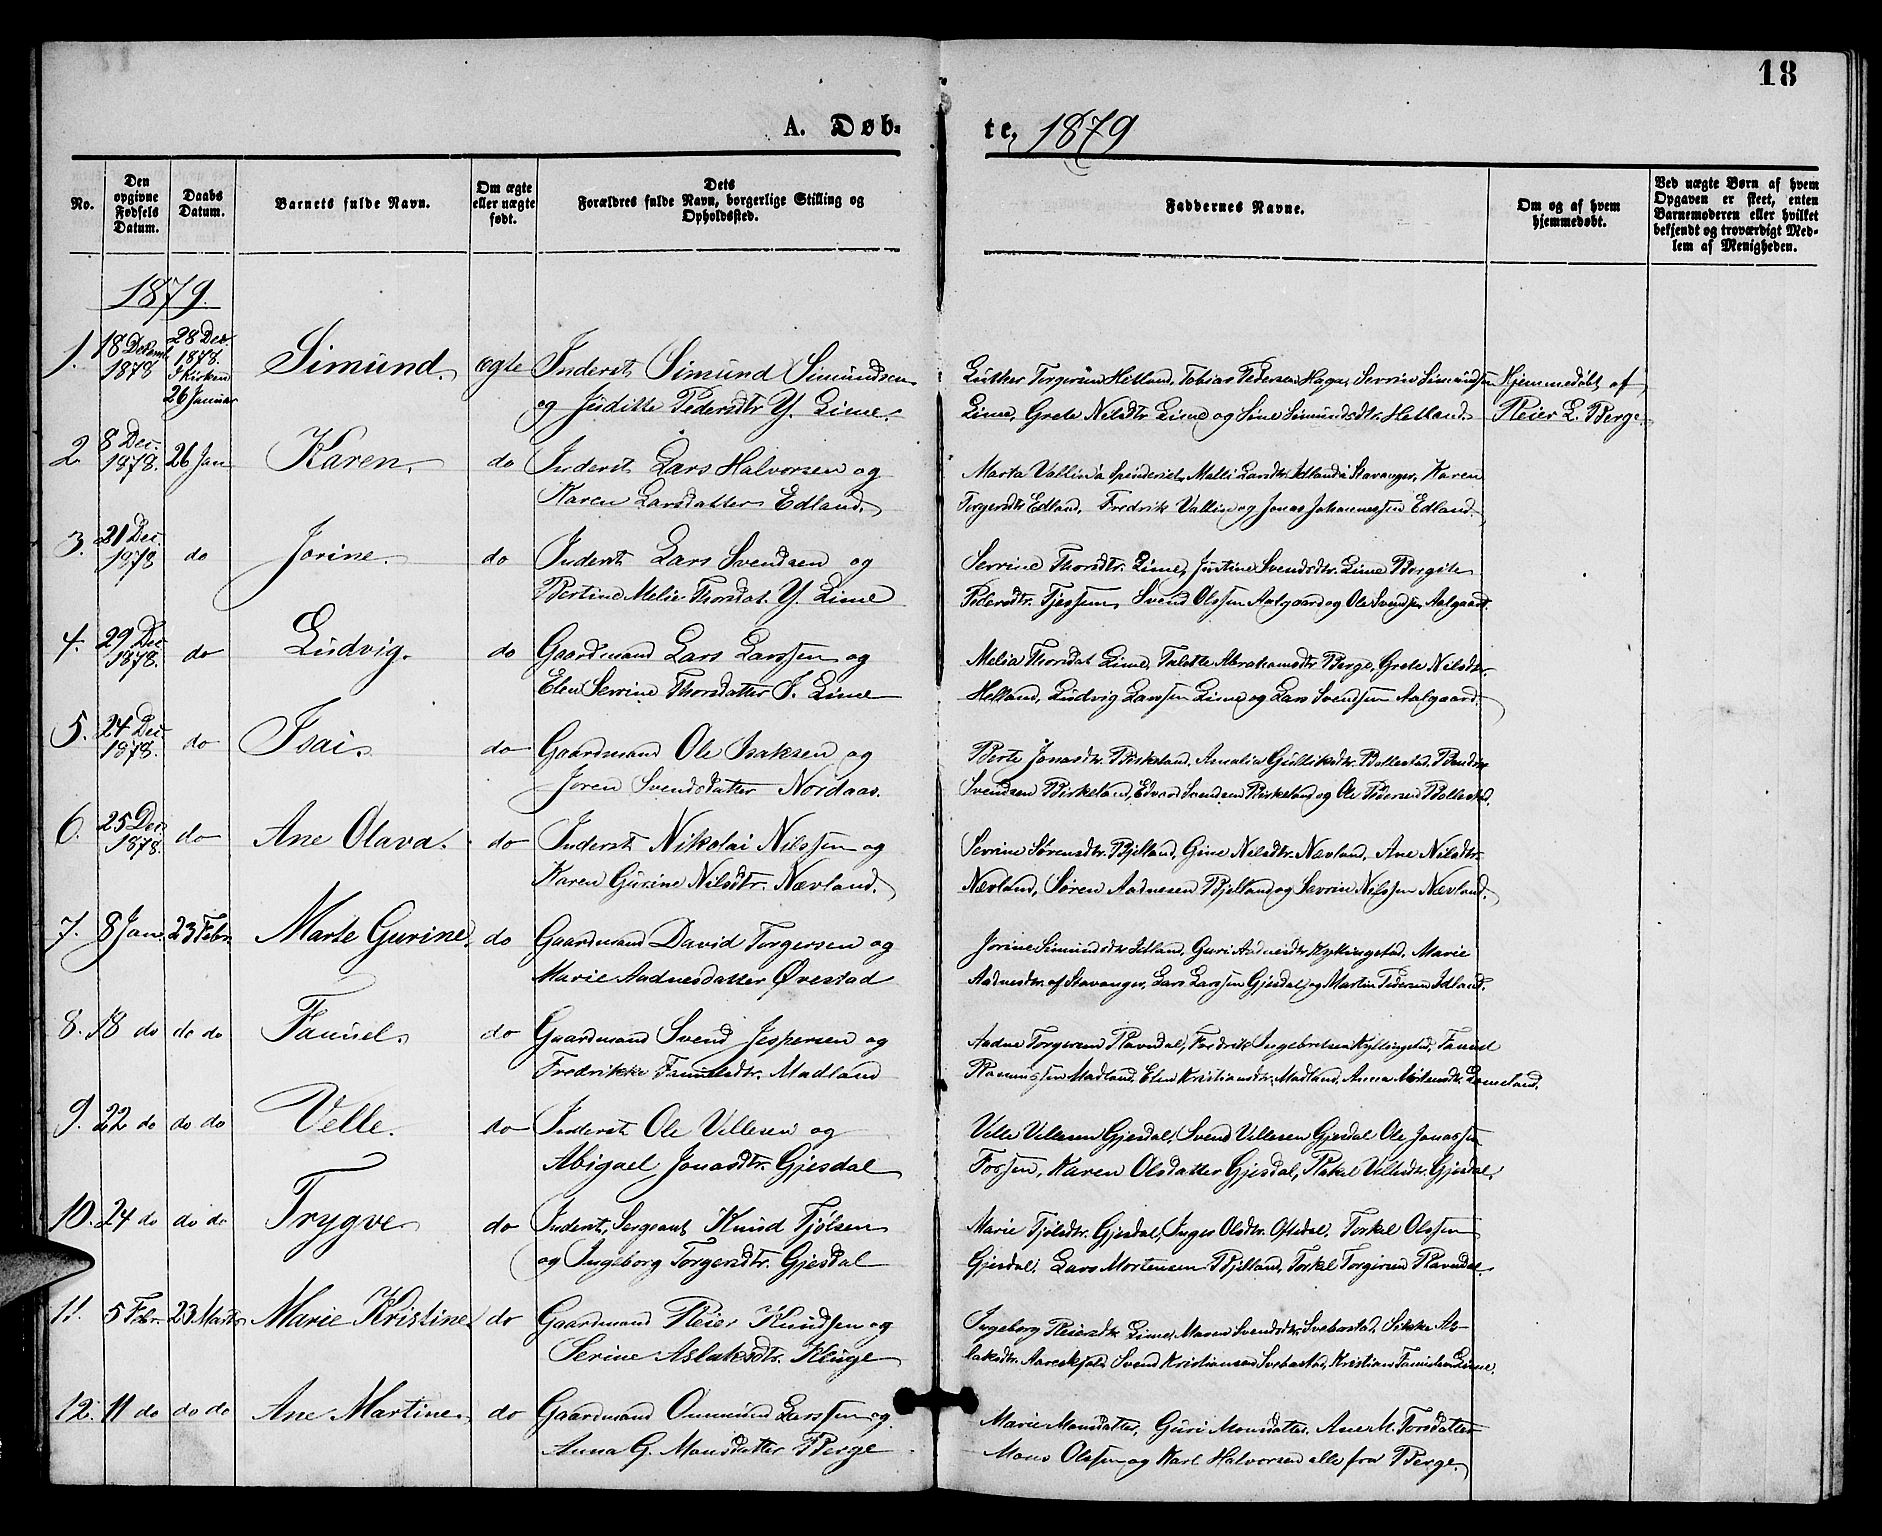 18
A. Døb- te, 1879
No.
Den opgivne Fødsels Datum.
Daabs Datum.
Barnets fulde Navn.
Om ægte eller uægte født.
Dets Forældres fulde Navn, borgerlige Stilling og Opholdssted.
Faddernes Navne.
Om og af hvem hjemmedøbt.
Ved uægte Børn af hvem Opgaven er skeet, enten Barnemoderen eller hvilket bekjendt og troværdigt Medlem af Menigheden.
1879.
1. 18 Decemb. 1878 28 Dec. 1878. I Kirken 26 Januar Simund. ægte Inderst Simund Simundsen
og Juditte Pedersdtr Y. Lime.
Luther Torgersen Hetland, Tobias Pedersen Haga, Serrine Simundsen
Lime, Grete Nilsdtr. Lime og Sine Simundsdtr. Hetland.
Hjemmedøbt af
Reier L. Berge.
2 8 Dec. 1878. 26 Jan Karen. do Inderst Lars Halvorsen og
Karen Larsdatter Edland.
Marta Vallin Malli Larsdtr. Stavanger, Karen
Torgersdtr. Edland, Fredrik Vallin og Jonas Johannessen Edland.
3. 21 Dec. 1878 do Jorine. do Inderst Lars Svendsen og
Bertine Melie Thorsdat. Y. Lime
Serrine Thorsdtr. Lime, Justine Svendsdtr. Lime Bergite
Pedersdtr. Tjessem Svend Olssen Aalgaard og Ole Svendsen Aalgaard.
4. 29 Dec 1878. do Ludvig. do Gaardmand Lars Larssen og
Elen Serrine Thorsdatter I. Lime
Melia Thorsdat Lime, Talette Abrahamsdtr. Berge, Grete Nilsdtr.
Helland, Ludvig Larssen Lime og Lars Svendsen Aalgaard.
5. 24 Dec 1878. do Isai. do Gaardmand Ole Isaksen og
Joren Svendsdatter Nordaas.
Berte Jonasdtr. Birkeland, Amalia Gulliksdtr. Bollestad,
Svendsen Birkeland, Edvard Svendsen Birkeland og Ole Pedersen Bollestad.
6. 25 Dec 1878. do Ane Olava. do Inderst Nikolai Nilssen og
Karen Gurine Nilsdtr. Nævland.
Serrine Sørensdtr. Bjelland, Gine Nilsdtr. Nævland, Ane Nilsdtr.
Nævland, Søren Aadnesen Bjelland og Serrine Nilssen Nævland.
7. 8 Jan. 23 Febr. Marte Gurine. do Gaardmand David Torgersen og
Marie Aadnesdatter Øvestad
Jorine Simundsdtr. Idland, Guri Aadnesdtr. Kyllingstad, Marie
Aadnesdtr. af Stavanger, Lars Larssen Gjesdal, og Martin Pedersen Idland.
8. 18 do do do Faniel. do Gaardmand Svend Jespersen og
Fredrikke Fanuelsdtr. Madland
Aadne Torgersen Ravndal, Fredrik Ingebretsen Kyllingstad, Fanuel
Rasmussen Madland, Elen Kristiansdtr. Madland, Anna
9. 22 do do do Velle. do Inderst Ole Villesen og
Abigael Jonasdtr. Gjesdal
Velle Vellesen Gjesdal, Svend Vellesen Gjesdal Ole Jonassen
Fossen, Karen Olsdatter Gjesdal, Rakel Villesdtr. Gjesdal.
10. 24 do do do Trygve do Inderst, Sergeant Knud Tjølsen
og Ingeborg Torgersdtr. Gjesdal
Marie Tjølsdtr. Gjesdal, Inger Olsdtr. Oftedal, Torkel Olssen
Gjesdal, Lars Mortensen Bjelland, Torkel Torgersen Ravndal.
11. 5 Febr. 23 Marts Marie Kristine. do Gaardmand Reier Knudsen og
Serine Aslaksdtr. Kluge
Ingeborg Reiersdtr. Lime, Maren Svendsdtr. Svebestad, Sikke As-
laksdtr. Aareskjold Svend Kristiansen Svebestad, Kristian Lime.
12. 11 do do do Ane Martine. do Gaardmand Ommund Larssen og
Anna G. Monsdatter Berge
Marie Monsdatter, Guri Monsdatter. Ane M. Torsdatter
Mons Olssen og Karl Halvorsen alle fra Berge.